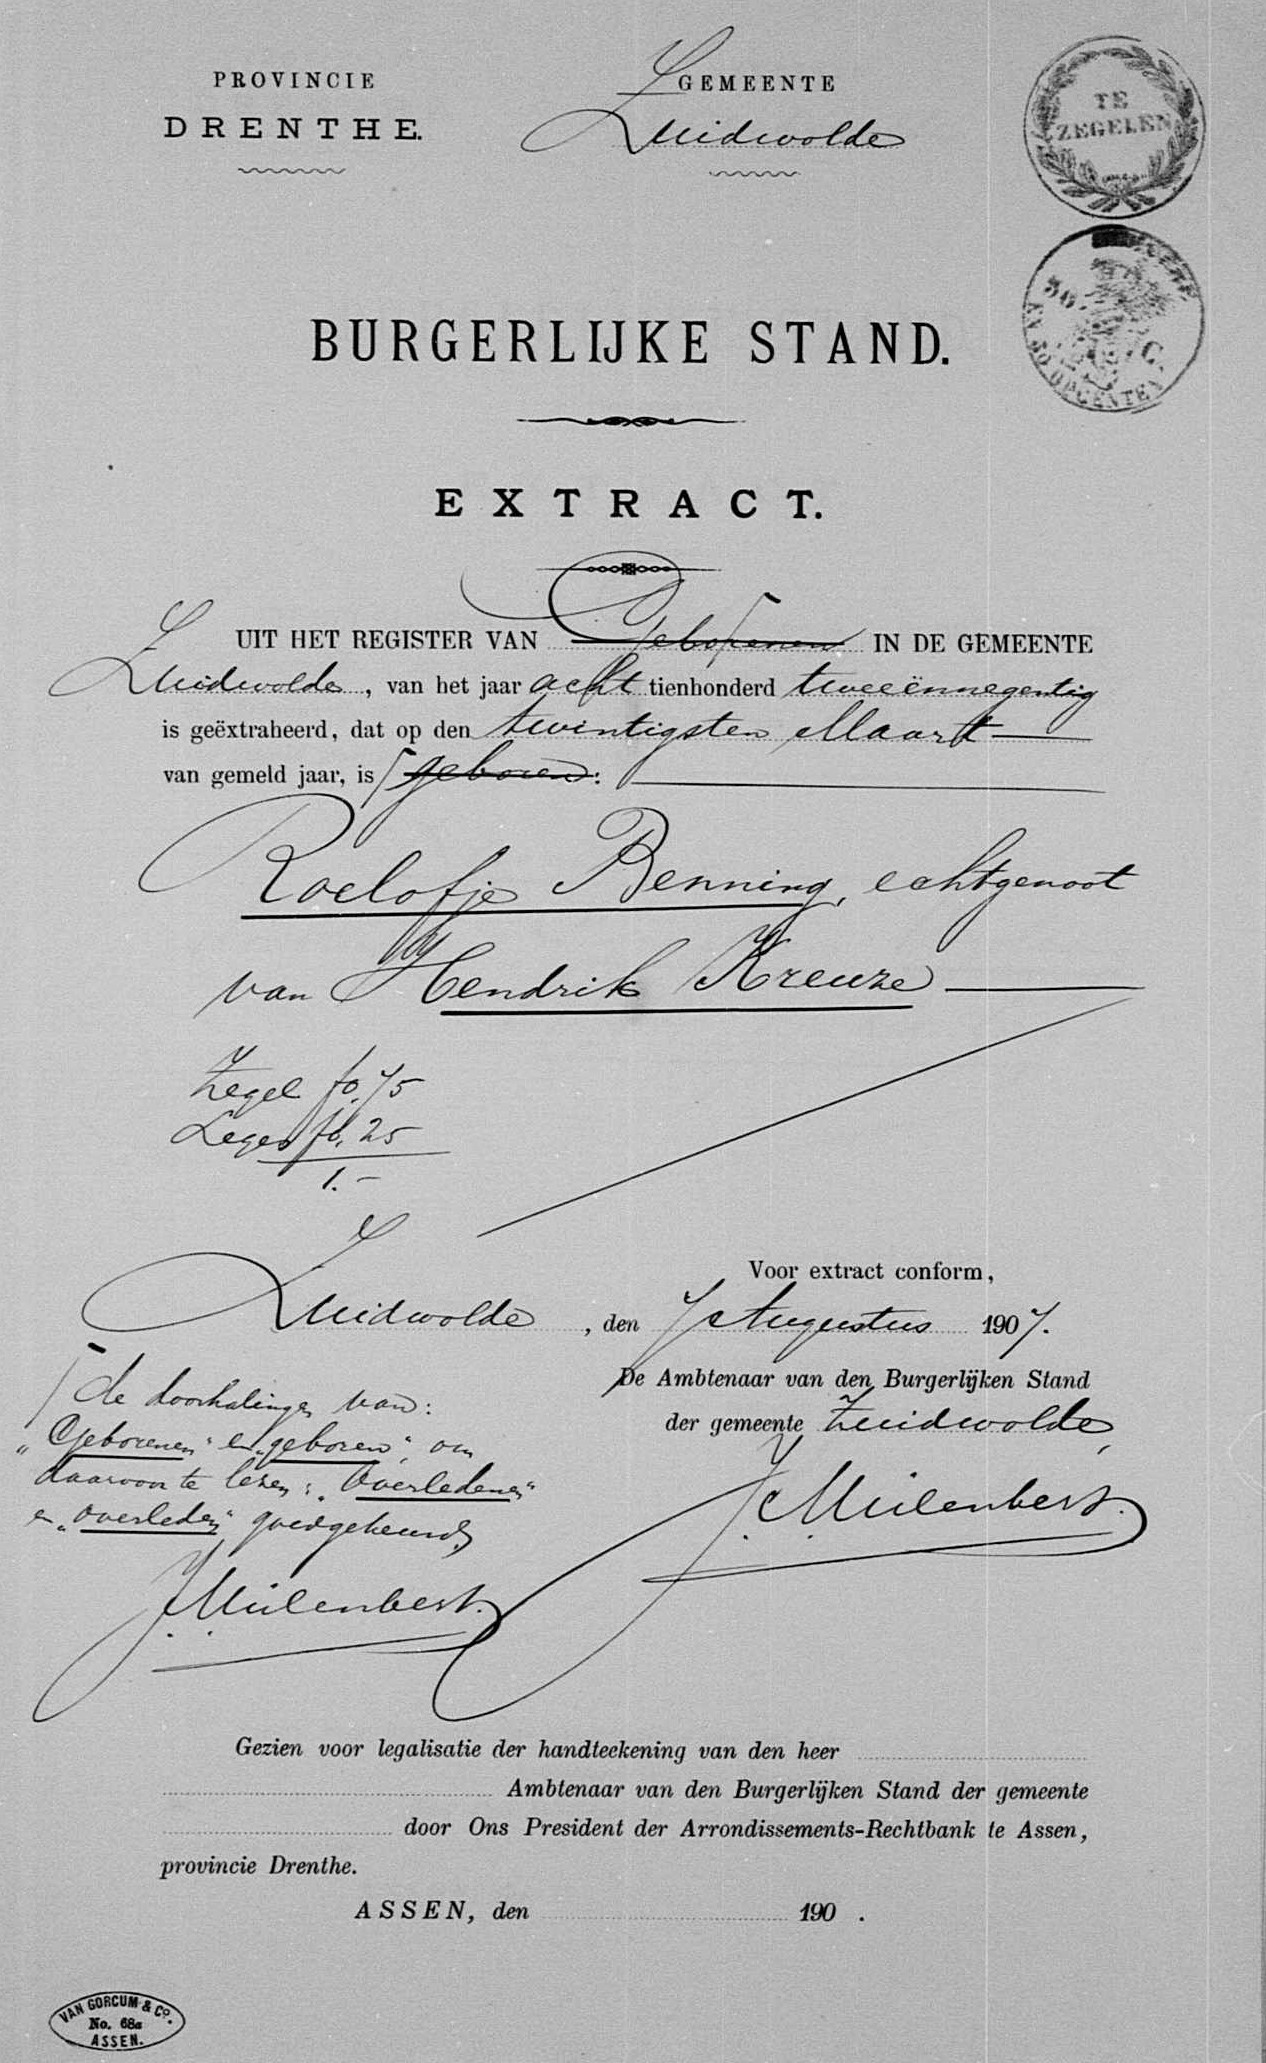 PROVINCIE
DRENTHE.
GEMEENTE
Zuidwolde
TE
ZEGELEN
50 C.
EN 50 OPCENTEN
BURGERLIJKE STAND.
EXTRACT.
UIT HET REGISTER VAN Geborenen IN DE GEMEENTE
Zuidwolde, van het jaar acht tienhonderd tweeënnegentig
is geëxtraheerd, dat op den twintigsten Maart
van gemeld jaar, is geboren:
Roelofje Benning, echtgenoot
van Hendrik Kreuze
Zegel f0.75
Leges f0.25
1.-
Voor extract conform,
Zuidwolde, den 7 Augustus 1907.
De Ambtenaar van den Burgerlijken Stand
der gemeente Zuidwolde,
de doorhalingen van:
„Geborenen" en „geboren", om
daarvoor te lezen: „Overledenen"
en „overleden" goedgekeurd,
Gezien voor legalisatie der handteekening van den heer
Ambtenaar van den Burgerlijken Stand der gemeente
door Ons President der Arrondissements-Rechtbank te Assen,
provincie Drenthe.
ASSEN, den 190 .
VAN GORCUM & Co.
No. 68a
ASSEN.